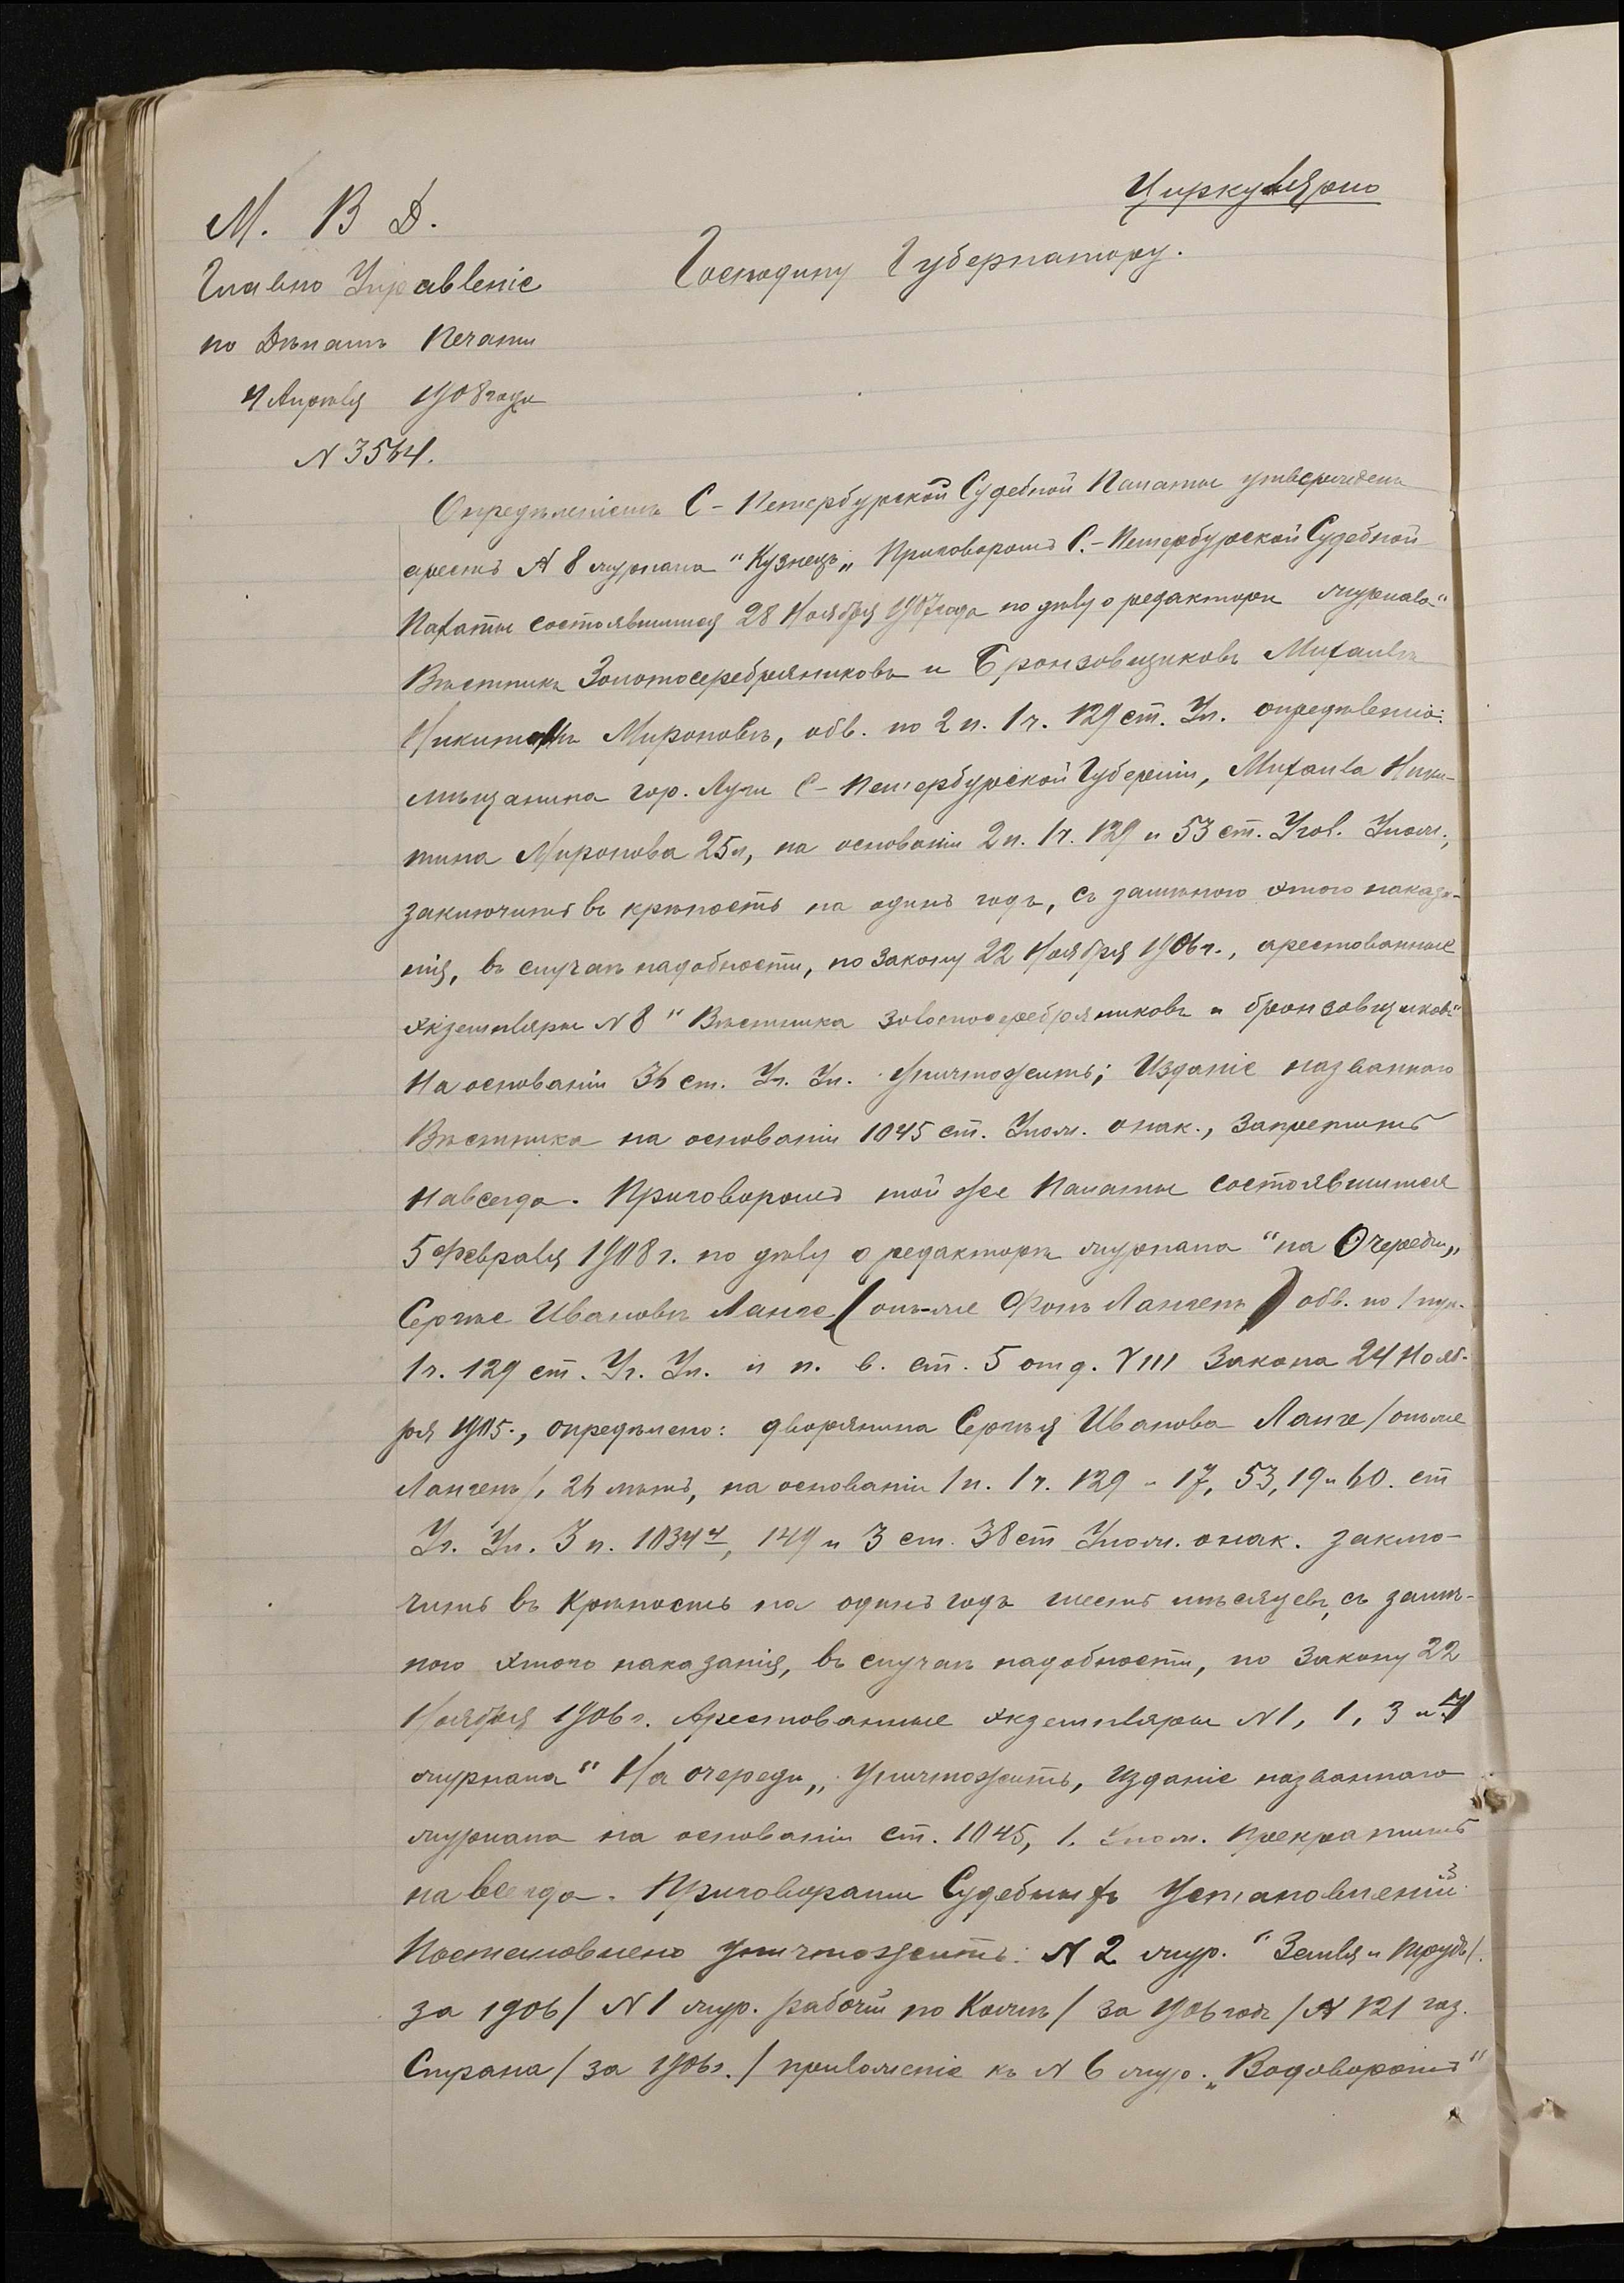 Циркулярно
М. В Д.
Господину Губернатору.
Главно Управленіе
по Дѣламъ Печати
4 Апрѣля 1908 года
N 3564.
Опредѣленіемъ С-Петербурской Судебной Палаты утвержденъ
арестъ N 8 журнала "Кузнецъ„ Приговоромъ С.-Петербурской Судебной
Палаты состоявшимся 28 Ноября 1907 года по дѣлу о редакторѣ журнала"
Вѣстникъ Золотосеребряниковъ и Бронзовщиковъ Михаилѣ
Никитинѣ Мироновѣ, обв. по 2 п. 1 ч. 129 ст. Ул. опредѣлено:
мѣщанина гор. Луги С-Петербурской Губерніи, Михаила Ники-
тина Миронова 25 л, на основаніи 2 п. 1 ч. 129 и 53 ст. Угол. Улож.,
заключить въ крѣпость на одинъ годъ, съ замѣною этого наказа-
нія, въ случаѣ надобности, по Закону 22 Ноября 1906 г., арестованные
экземпляры N 8 "Вѣстника Золотосеребряниковъ и бронзовщиковъ"
На основаніи 36 ст. Уг. Ул. Уничтожить; Изданіе названнаго
Вѣстника на основаніи 1045 ст. Улож. о нак., Запретить
навсегда. Приговоромъ той же Палаты состоявшимся
5 Февраля 1908 г. по дѣлу о редакторѣ журнала "на Очереди„
Сергѣе Ивановѣ Ланге (онъ-же Фонъ Лангенъ) обв. по 1 пун.
1 ч. 129 ст. Уг. Ул. и п. в. ст. 5 отд. VIII Закона 24 Нояб-
ря 1905., опредѣлено: дворянина Сергѣя Иванова Ланге /онъ же
Лангенъ/, 26 лѣтъ, на основаніи 1 п. 1 ч. 129 и 17, 53, 19 и 60. ст
Уг. Ул. 3 п. 1034⁴, 149 и 3 ст. 38 ст Улож. о нак. заклю-
чить въ Крѣпость на одинъ годъ шесть мѣсяцевъ, съ замѣ-
ною этого наказанія, въ случаѣ надобности, по Закону 22
Ноября 1906 г. Арестованные экземпляры N 1, 1, 3 и 4
журнала "На очереди„ Уничтожить, Изданіе названнаго
журнала на основаніи ст. 1045, 1. Улож. Прекратить
на всегда. Приговорами Судебныхъ Установленій
Постановлено уничтожить: N 2 жур. "Земля и Трудъ/.
за 1906/ N 1 жур. рабочій по Кожѣ/ за 1906 годъ/ N 121 газ.
Страна/ за 1906 г./ приложеніе къ N 6 жур. „Водоворотъ"